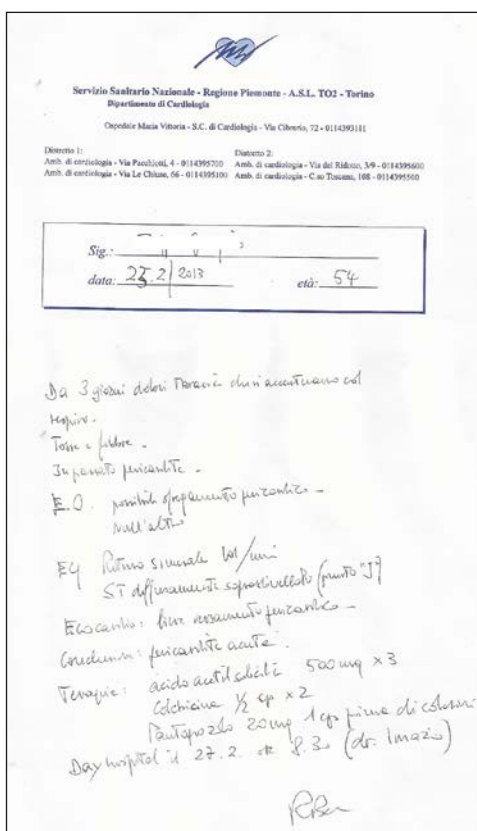 Servizio Sanitario Nazionale - Regione Piemonte - A.S.L. TO2 - Torino
Dipartimento di Cardiologia
Ospedale Maria Vittoria - S.C. di Cardiologia - Via Cibrario, 72 - 0114393111
Distretto 1:
Amb. di cardiologia - Via Pacchiotti, 4 - 0114395700
Amb. di cardiologia - Via Le Chiuse, 66 - 0114395100
Distretto 2:
Amb. di cardiologia - Via del Ridotto, 3/9 - 0114395600
Amb. di cardiologia - C.so Toscana, 108 - 0114395500
Sig.:
data: 25.2 2013 età: 54
Da 3 giorni dolori toracici che si accentuano col
respiro.
Tosse e febbre -
In passato pericardite -
E.O. possibile sfregamento pericardico -
Null'altro
Ritmo sinusale 101/min
ST diffusamente sopraslivellato (punto "J")
Ecocardio: lieve versamento pericardico -
Conclusioni: pericardite acuta.
Terapia: acido acetilsalicilic 500 mg x 3
Colchicina 1/2 cp x 2
Pantoprazolo 20mg 1 cp prima di colazione
Day hospital il 27.2. ore 8.30 (dr. Imazio)